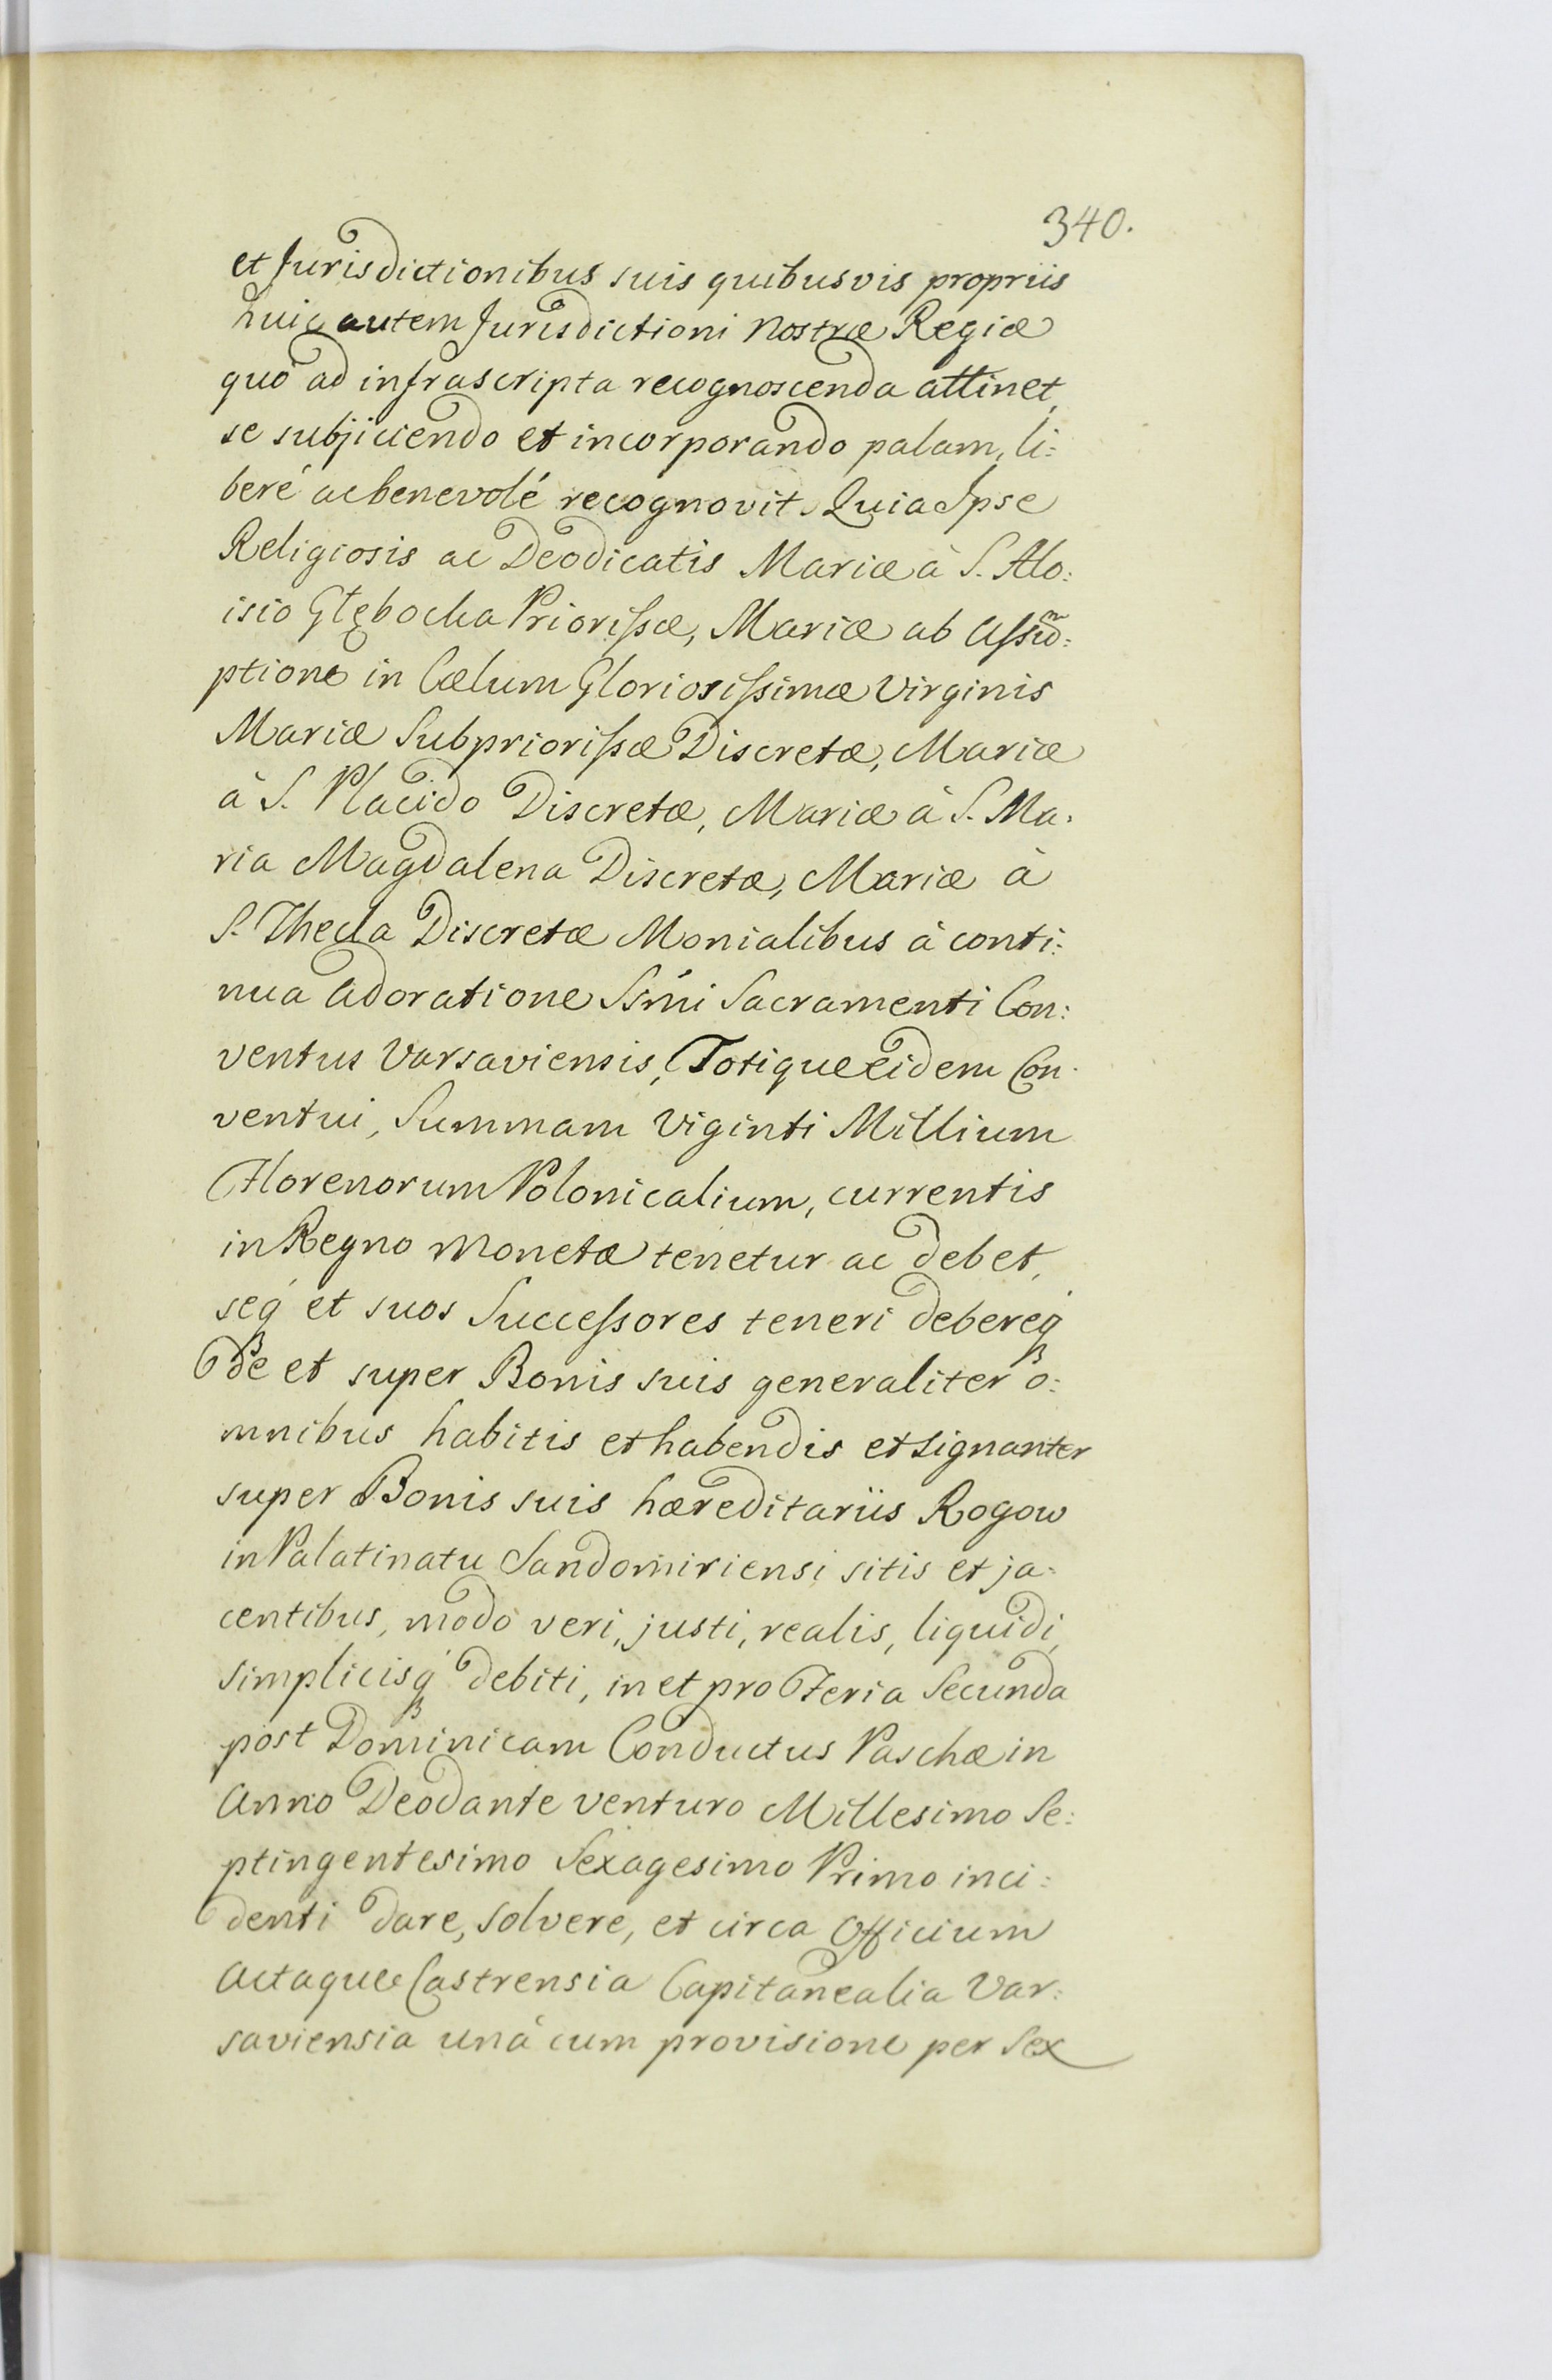 340.
et Jurisdictionibus suis quibusvis propriis
huic autem Jurisdictioni Nostræ Regiæ
quò ad infrascripta recognoscenda attinet,
se subjiciendo et incorporando palam, li:
berè ac benevolé recognovit. Quia Ipse
Religiosis ac Deodicatis Mariæ à S. Alo:
isio Głębocka Priorissæ, Mariæ ab Assũ:
ptione in Cælum Gloriosissimæ Virginis
Mariæ Subpriorissæ Discretæ, Mariæ
à S. Placido Discretæ, Mariæ à S. Ma:
ria Magdalena Discretæ, Mariæ à
S. Thecla Discretæ Monialibus à conti:
nua Adoratione Ssmi Sacramenti Con:
ventus Varsaviensis, Totique eidem Con:
ventui, Summam Viginti Millium
Florenorum Polonicalium, currentis
in Regno Monetæ tenetur ac debet,
seq́ et suos Successores teneri debereq́
de et super Bonis suis generaliter o:
mnibus habitis et habendis et signanter
super Bonis suis hæreditariis Rogow
in Palatinatu Sandomiriensi sitis et ja:
centibus, modo veri, justi, realis, liquidi,
simplicisq́ debiti, in et pro Feria Secunda
post Dominicam Conductus Paschæ in
Anno Deodante venturo Millesimo Se:
ptingentesimo Sexagesimo Primo inci:
denti dare, solvere, et circa Officium
Actaque Castrensia Capitanealia Var:
saviensia unà cum provisione per Sex